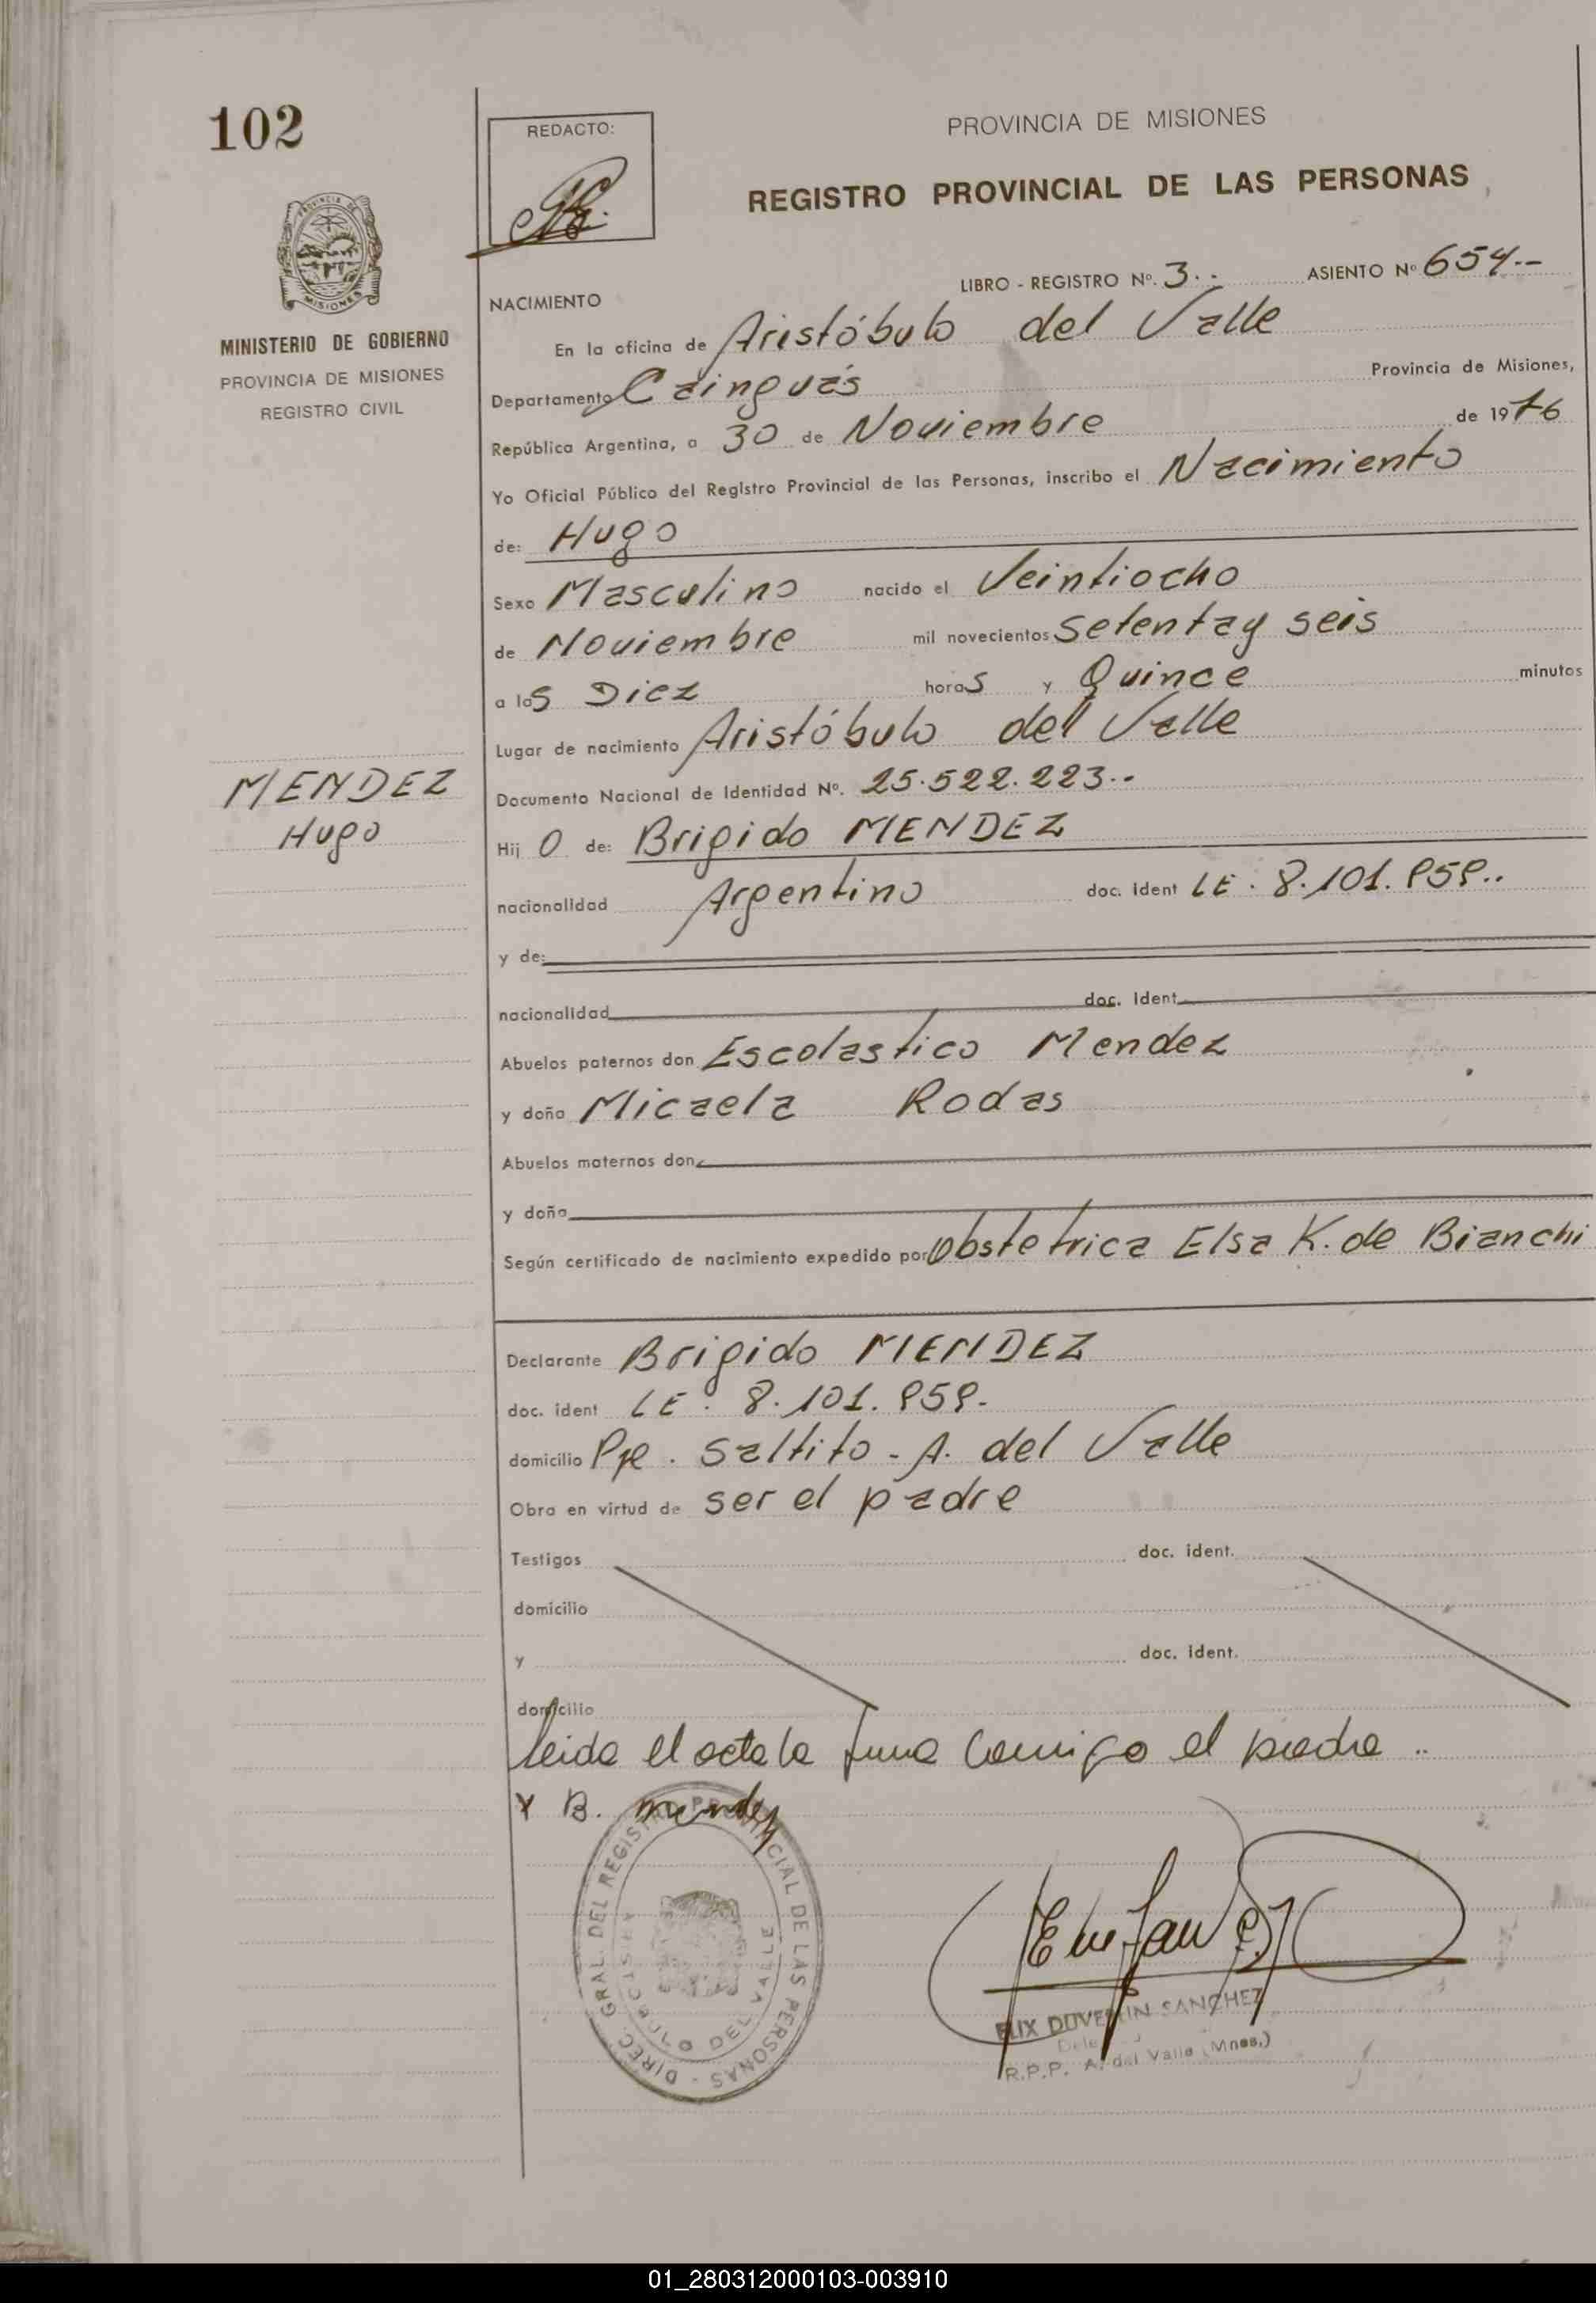 102
REDACTO:
PROVINCIA DE MISIONES
REGISTRO PROVINCIAL DE LAS PERSONAS
PROVINCIA DE MISIONES
MINISTERIO DE GOBIERNO
PROVINCIA DE MISIONES
REGISTRO CIVIL
LIBRO - REGISTRO Nº. 3.. ASIENTO Nº 654.--
NACIMIENTO
En la oficina de Aristóbulo del Valle
Departamento Cainguás Provincia de Misiones,
República Argentina, a 30 de Noviembre de 1976
Yo Oficial Público del Registro Provincial de las Personas, inscribo el Nacimiento
de: Hugo
Sexo Masculino nacido el Veintiocho
de Noviembre mil novecientos Setenta y seis
a las Diez horas y Quince minutos
Lugar de nacimiento Aristóbulo del Valle
MENDEZ
Hugo
Documento Nacional de Identidad Nº. 25.522.223..
Hij O de: Brigido MENDEZ
nacionalidad Argentino doc. ident LE. 8.101.959..
y de:
nacionalidad doc. Ident
Abuelos paternos don Escolastico Mendez
y doña Micaela Rodas
Abuelos maternos don
y doña
Según certificado de nacimiento expedido por Obstetrica Elsa K. de Bianchi
Declarante Brigido MENDEZ
doc. ident LE. 8.101.959.
domicilio Pje. Saltito - A. del Valle
Obra en virtud de ser el padre
Testigos doc. ident.
domicilio
y doc. ident.
domicilio
leida el acta la firma conmigo el padre ..
X B. mendez
DIREC. GRAL. DEL REGISTRO PROVINCIAL DE LAS PERSONAS -
ARISTOBULO DEL VALLE
SANCHEZ
R.P.P. A. del Valle (Mnes.)
01_280312000103-003910